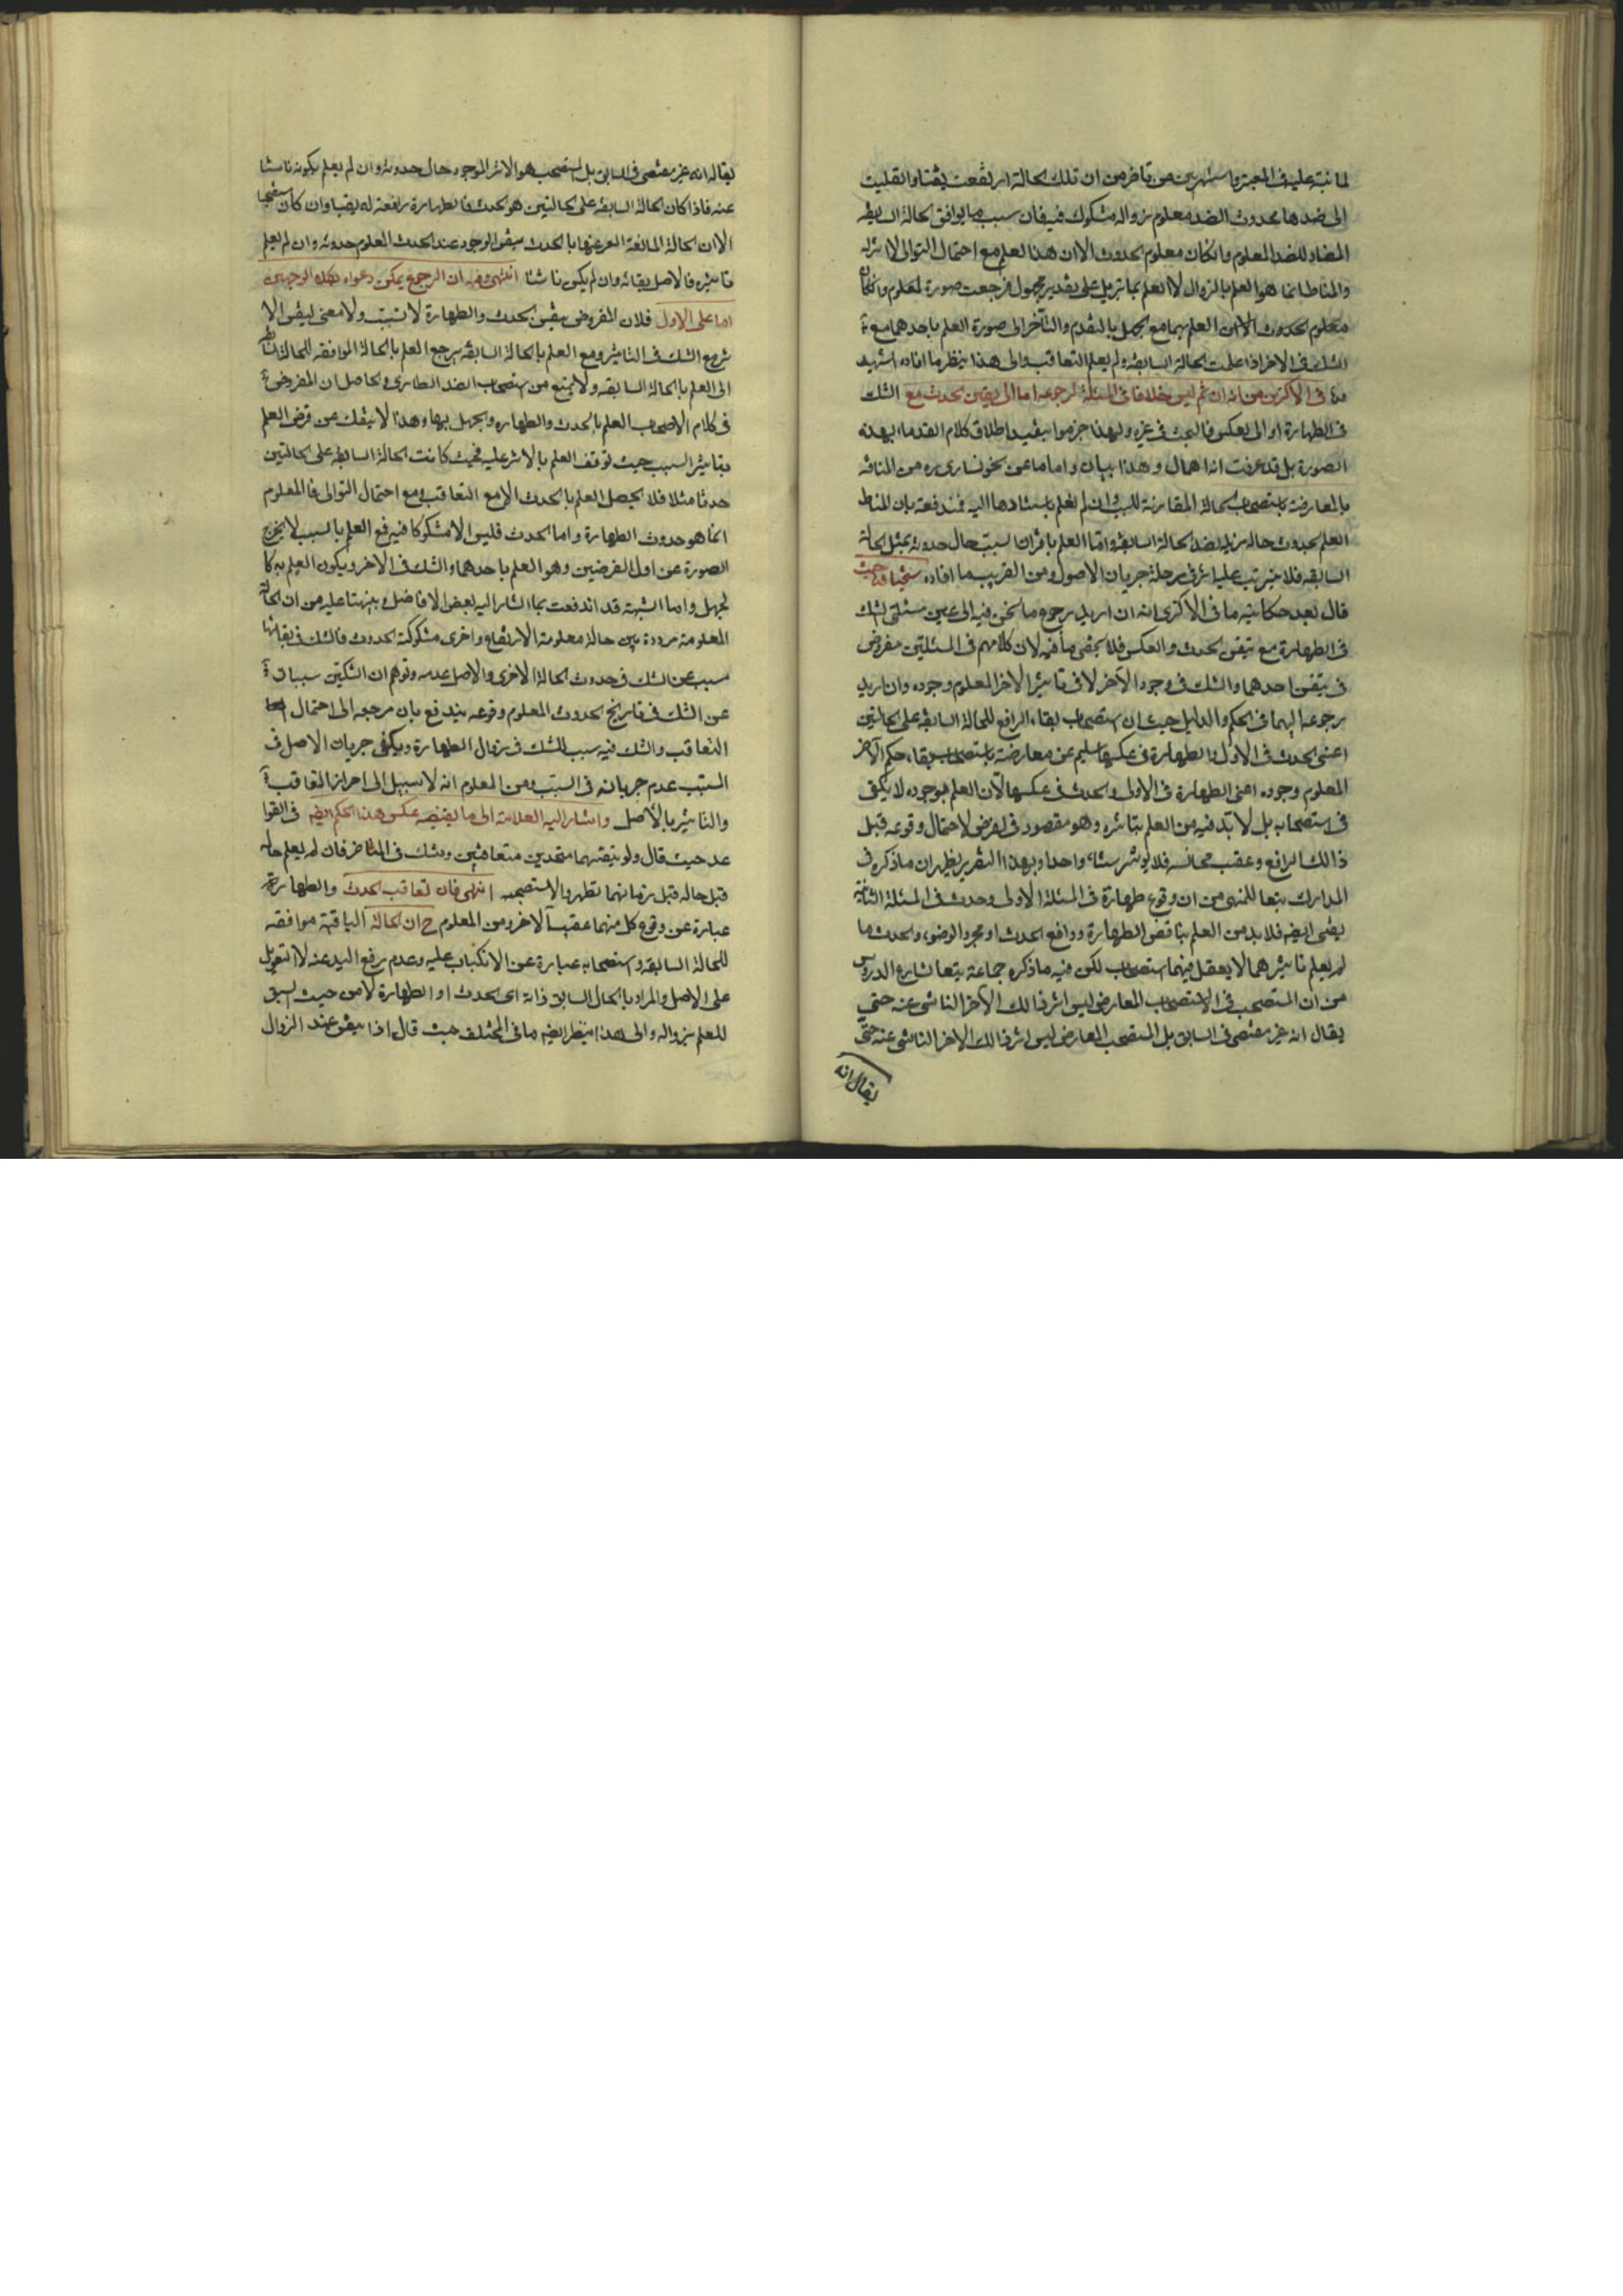 لما نبه عليه فى المعتبر واستهر بين من تاخر من ان تلك الحالة ارتفعت يقينا وانقلبت
الى ضدها محدوث الضد معلوم زواله مشكوك فيه فان سبب ما يوافق الحالة السابقه
المضاد للضد المعلوم وان كان معلوم الحدوث الا ان هذا العلم مع احتمال التوالى لا اثر له
والمناط انما هو العلم بالزوال لا العلم بما يزيل على تقدير مجهول فرجعت صورة العلم وان كان
معلوم الحدوث الا ان العلم بهما مع الجهل بالتقدم والتأخر الى صورة العلم باحدهما مع
الشك فى الاخر اذا علمت الحالة السابقه ولم يعلم التعاقب والى هذا ينظر ما افاده الشهيد
فى الذكرى من انه ان تم ليس خلافا فى المسئلة لرجوعه اما الى يقين الحدث مع الشك
فى الطهارة او الى العكس فالبحث فى غيره ولهذا جزموا بتقييد اطلاق كلام القدماء بهذه
الصورة بل قد عرفت انه اهمال وهذا بيان واما ما عن الخونسارى ره من المناقشه
بالمعارضة باستصحاب الحالة المقارنة للسبب وان لم نعلم باستنادها اليه فمندفعة بان المناط
العلم بحدوث حاله مزيله لضد الحالة السابقه واما العلم باقتران السبب حال حدوثه بمثل الحالة
السابقه فلا يترتب عليه اثر فى مرحلة جريان الاصول ومن الغريب ما افاده شيخنا قده حيث
قال بعد حكايته ما فى الذكرى انه ان اريد رجوع ما نحن فيه الى عين مسئلتى الشك
فى الطهارة مع تيقن الحدث والعكس فلا يخفى ما فيه لان كلامهم فى المسئلتين مفروض
فى تيقن احدهما والشك فى وجود الآخر لا فى تاثير الاخر المعلوم وجوده وان اريد
رجوعه اليهما فى الحكم والدليل حيث ان استصحاب بقاء الرافع للحالة السابقه على الحالتين
اعنى الحدث فى الاول والطهارة فى عكسها سليم عن معارضة باستصحاب بقاء حكم الآخر
المعلوم وجوده اعنى الطهارة فى الاولى والحدث فى عكسها لأن العلم بوجوده لا يكفى
فى استصحابه بل لا بد فيه من العلم بتاثره وهو مقصود فى الفرض لاحتمال وقوعه قبل
ذالك الرافع وعقب مجانسه فلا يؤثر شيئا واحدا وبهذا التقرير يظهر ان ما ذكره فى
المدارك تبعا للمنهى من ان وقوع طهارة فى المسئلة الاولى وحدث فى المسئلة الثانية
يقينى ايضه فلا بد من العلم بناقض الطهارة ورافع الحدث او مجرد الوضوء والحدث ما
لم يعلم تاثيرهما لا يعقل فيهما استصحاب لكن فيه ما ذكره جماعة تبعا لشارع الدروس
من ان المستصحب فى الاستصحاب المعارض ليس اثر ذالك الآخر الناشى عنه حتى
يقال انه غير مقتضى فى السابق بل المستصحب المعارض ليس اثر ذالك الاخر الناشى عنه حتى
يقال انه
يقال انه غير مقتضى فى السابق بل المستصحب هو الاثر الموجود حال حدوثه وان لم يعلم بكونه ناشئا
عنه فاذا كان الحالة السابقه على الحالتين هو الحدث فالطهارة رافعة له يقينا وان كان
الا ان الحالة المانعة المعبر عنها بالحدث متيقن الوجود عند الحدث المعلوم حدوثه وان لم يعلم
تاثيره فالاصل بقائه وان لم يكن ناشئا انتهى وفيه ان الرجوع يمكن دعواه بكلا الوجهين
اما على الاول فلان المفروض تيقن الحدث والطهارة لا تسبب ولا معنى ليقين الا
ثر مع الشك فى التاثير ومع العلم بالحالة السابقه يرجع العلم بالحالة الموافقه للحالة
الى العلم بالحالة السابقه ولا يمنع من استصحاب الضد الطارى والحاصل ان المفروض
فى كلام الاصحاب العلم بالحدث والطهاره والجهل بهما وهذا لا ينفك عن فرض العلم
بتاثير السبب حيث توقف العلم بالاثر عليه فحيث كانت الحالة السابقه على الحالتين
حدثا مثلا فلا يحصل العلم بالحدث الا مع التعاقب ومع احتمال التوالى فالمعلوم
انما هو حدوث الطهارة واما الحدث فليس الا مشكوكا فيه فع العلم بالسبب لا يخرج
الصورة عن اول الفرضين وهو العلم باحدهما والشك فى الاخر ويكون العلم به كا
لجهل واما الشبهة قد اندفعت بما اشار اليه بعض الافاضل ونبهنا عليه من ان الحالة
المعلومة مرددة بين حالة معلومة الارتفاع واخرى مشكوكة الحدوث فالشك فى بقائها
مسبب عن الشك فى حدوث الحالة الاخرى والاصل عدمه وتوهم ان الشكين سببان
عن الشك فى تاريخ الحدوث المعلوم وقوعه يندفع بان مرجعه الى احتمال
التعاقب والشك فيه سبب للشك فى زوال الطهارة ويكفى جريان الاصل فى
المسبب عدم جريانه فى السبب ومن المعلوم انه لا سبيل الى احراز التعاقب
والتاثير بالاصل واشار اليه العلامة الى ما يقتضيه عكس هذا الحكم ايضه فى القوا
عد حيث قال ولو تيقنهما متحدين متعاقبين وشك فى المتاخر فان لم يعلم حاله
قبل حاله قبل زمانهما تطهر والا استصحبه انتهى فان تعاقب الحدث والطهارة
عبارة عن وقوع كل منهما عقيب الاخر ومن المعلوم ح ان الحالة الباقية موافقه
للحالة السابقه واستصحابه عبارة عن الانكباب عليه وعدم رفع اليد عنه لا التعويل
على الاصل والمراد بالحال السابق ذاته اى الحدث او الطهارة لا من حيث السبق
للعلم بزواله والى هذا ينظر ايضه ما فى المختلف حيث قال اذا تيقن عند الزوال